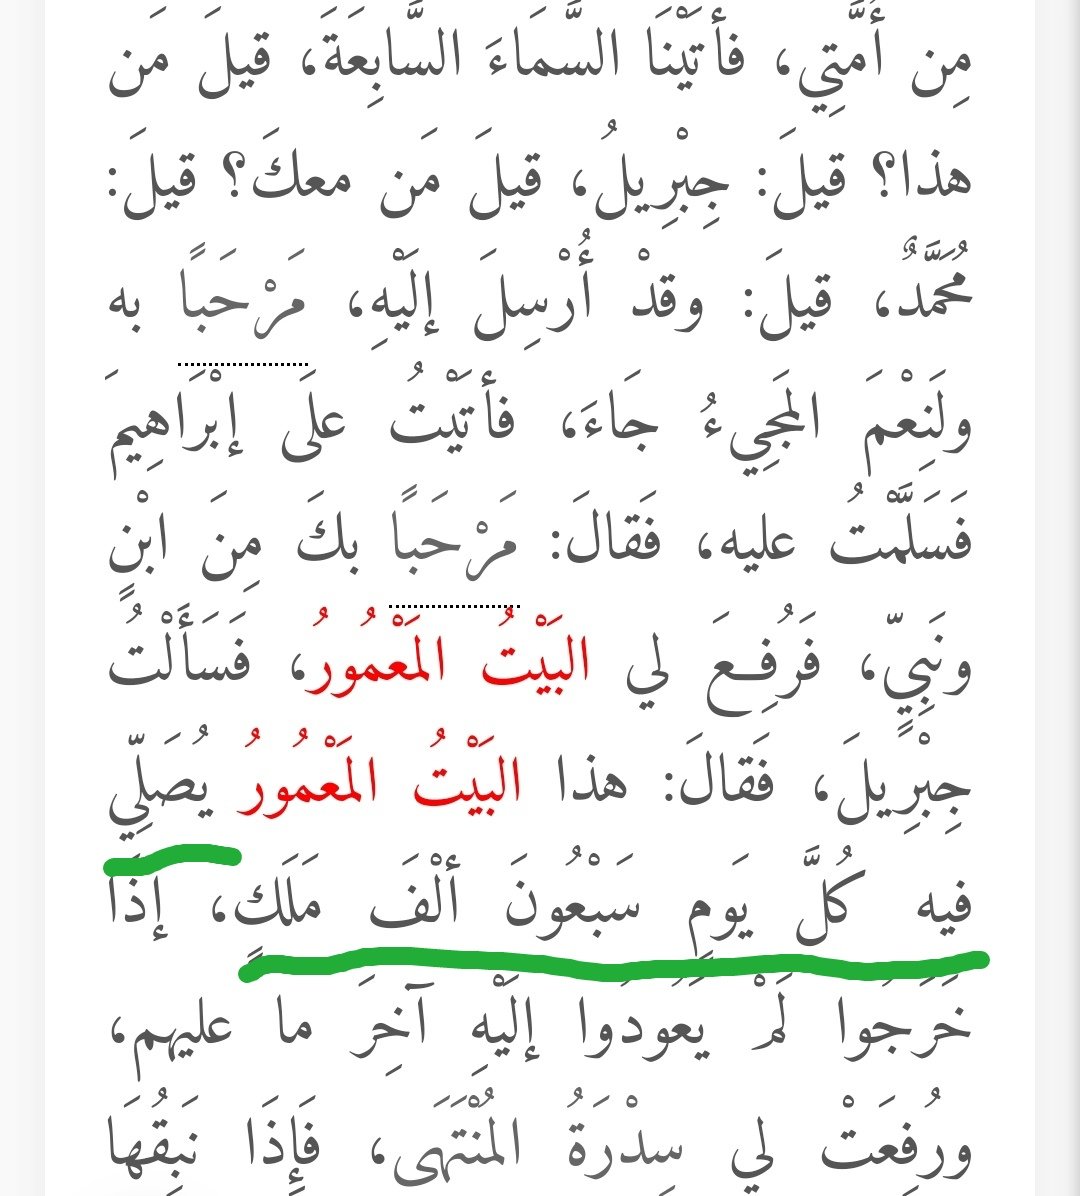 مِن أُمَّتِي، فأتَيْنَا السَّمَاءَ السَّابِعَةَ، قيلَ مَن
هذا؟ قيلَ: جِبْرِيلُ، قيلَ مَن معكَ؟ قيلَ:
مُحَمَّدٌ، قيلَ: وقدْ أُرْسِلَ إلَيْهِ، مَرْحَبًا به
ولَنِعْمَ المَجِيءُ جَاءَ، فأتَيْتُ علَى إبْرَاهِيمَ
فَسَلَّمْتُ عليه، فَقالَ: مَرْحَبًا بكَ مِنَ ابْنٍ
ونَبِيٍّ، فَرُفِعَ لي البَيْتُ المَعْمُورُ، فَسَأَلْتُ
جِبْرِيلَ، فَقالَ: هذا البَيْتُ المَعْمُورُ يُصَلِّي
فيه كُلَّ يَومٍ سَبْعُونَ ألْفَ مَلَكٍ، إذَا
خَرَجُوا لَمْ يَعُودُوا إلَيْهِ آخِرَ ما عليهم،
ورُفِعَتْ لي سِدْرَةُ المُنْتَهَى، فَإِذَا نَبِقُهَا